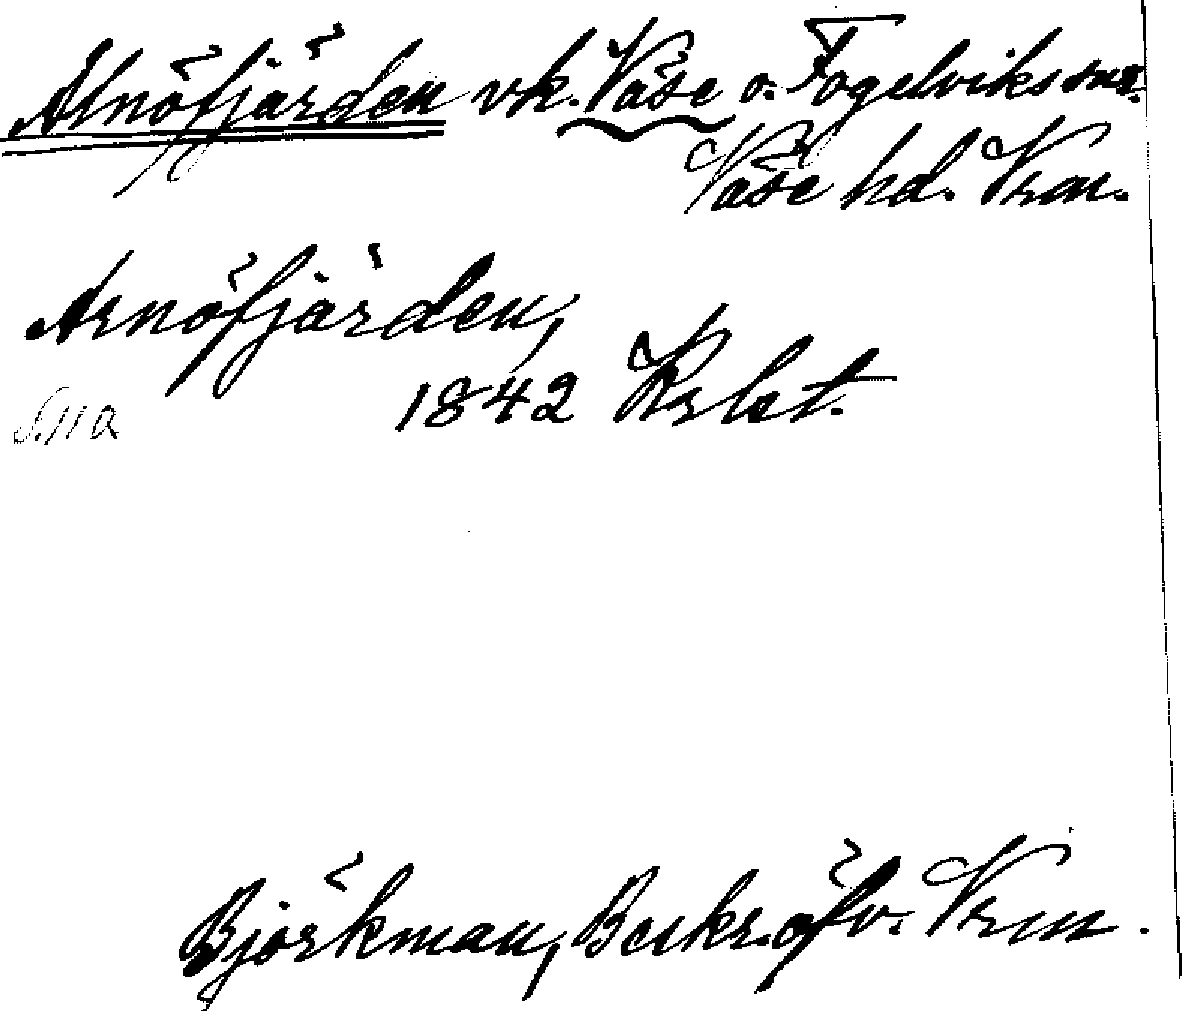 Arnöfjärden vk. Väse o. Fogelviks snr.
Väse hd. Vrm.
Arnöfjärden,
1842 Krlst.
S. 11 a
Björkman, Beskr. öfv. Vrm.